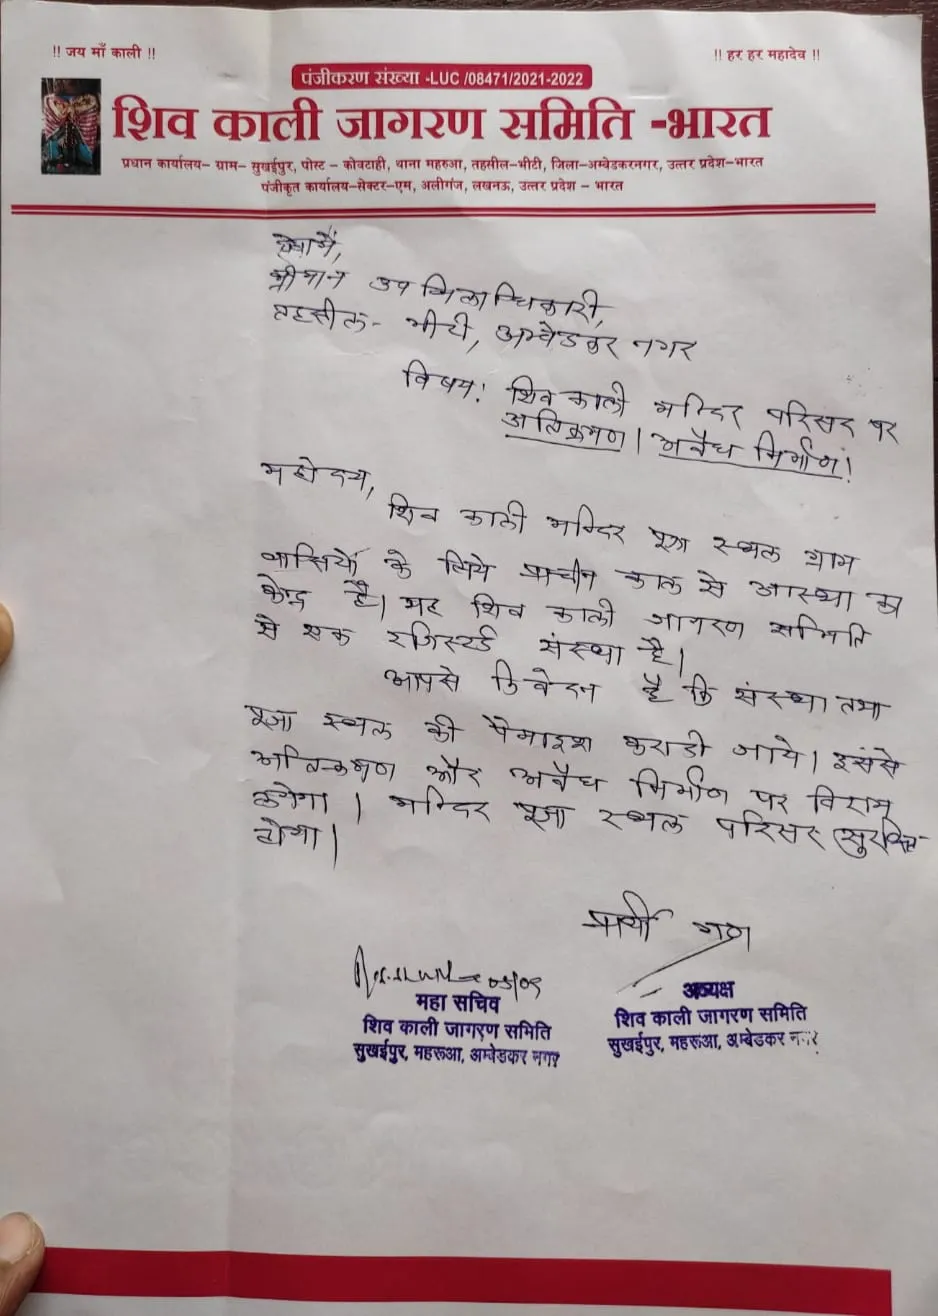 !! जय माँ काली !!
!! हर हर महादेव !!
पंजीकरण संख्या -LUC /08471/2021-2022
शिव काली जागरण समिति -भारत
प्रधान कार्यालय– ग्राम– सुखईपुर, पोस्ट – कोवटाही, थाना महरुआ, तहसील–भीटी, जिला–अम्बेडकरनगर, उत्तर प्रदेश–भारत
पंजीकृत कार्यालय–सेक्टर–एम, अलीगंज, लखनऊ, उत्तर प्रदेश – भारत
सेवा में,
श्रीमान उप जिलाधिकारी,
तहसील- भीटी, अम्बेडकर नगर
विषय: शिव काली मन्दिर परिसर पर
अतिक्रमण। अवैध निर्माण!
महोदय,
शिव काली मन्दिर पूजा स्थल ग्राम
वासियों के लिये प्राचीन काल से आस्था का
केन्द्र है। यह शिव काली जागरण समिति
से एक रजिस्टर्ड संस्था है।
आपसे निवेदन है कि संस्था तथा
पूजा स्थल की पैमाइश कराई जाये। इससे
अतिक्रमण और अवैध निर्माण पर विराम
लगेगा। मन्दिर पूजा स्थल परिसर सुरक्षित
होगा।
प्रार्थी गण
महा सचिव
शिव काली जागरण समिति
सुखईपुर, महरूआ, अम्बेडकर नगर
अध्यक्ष
शिव काली जागरण समिति
सुखईपुर, महरूआ, अम्बेडकर नगर